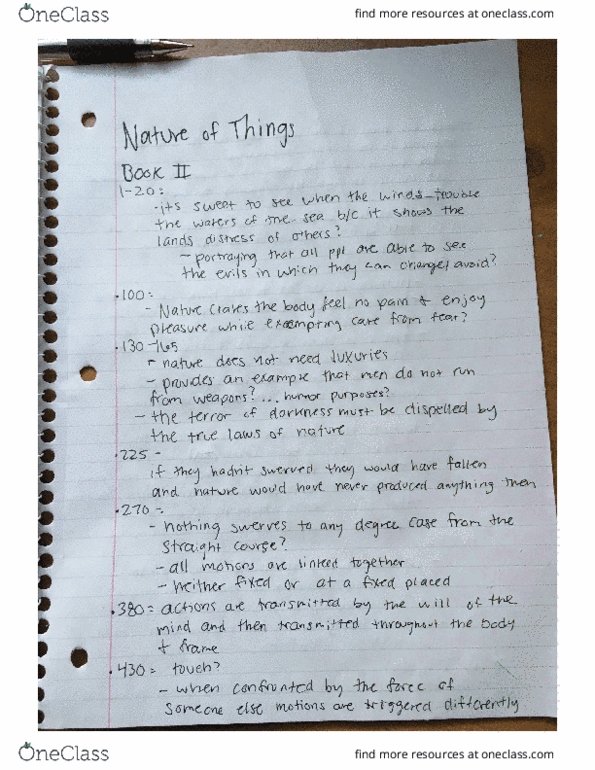 OneClass
find more resources at oneclass.com
Nature of Things
Book II
1-20:
- its sweet to see when the winds trouble
the waters of the sea b/c it shows the
lands distress of others?
- portraying that all ppl are able to see
the evils in which they can change/avoid?
• 100:
- Nature craves the body feel no pain & enjoy
pleasure while exempting care from fear?
• 130-165
- nature does not need luxuries
- provides an example that men do not run
from weapons? ... humor purposes?
- the terror of darkness must be dispelled by
the true laws of nature
• 225 -
if they hadn't swerved they would have fallen
and nature would have never produced anything then
• 270 -
- nothing swerves to any degree case from the
straight course?
- all motions are linked together
- neither fixed or at a fixed placed
• 380= actions are transmitted by the will of the
mind and then transmitted throughout the body
+ frame
• 430= touch?
- when confronted by the force of
someone else motions are triggered differently
OneClass
find more resources at oneclass.com